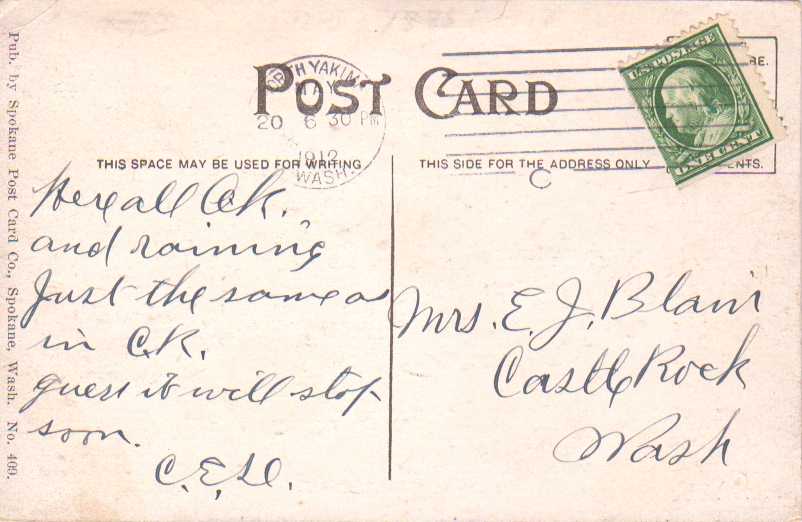 Pub. by Spokane Post Card Co., Spokane, Wash. No. 409.
POST CARD
NORTH YAKIMA
MAY
20 6 30 PM
1912
WASH.
U.S. POSTAGE
ONE CENT
THIS SPACE MAY BE USED FOR WRITING
THIS SIDE FOR THE ADDRESS ONLY
C
Here all O.K.
and raining
Just the same as
in C.R.
guess it will stop
soon.
Mrs. E. J. Blair
Castle Rock
Wash